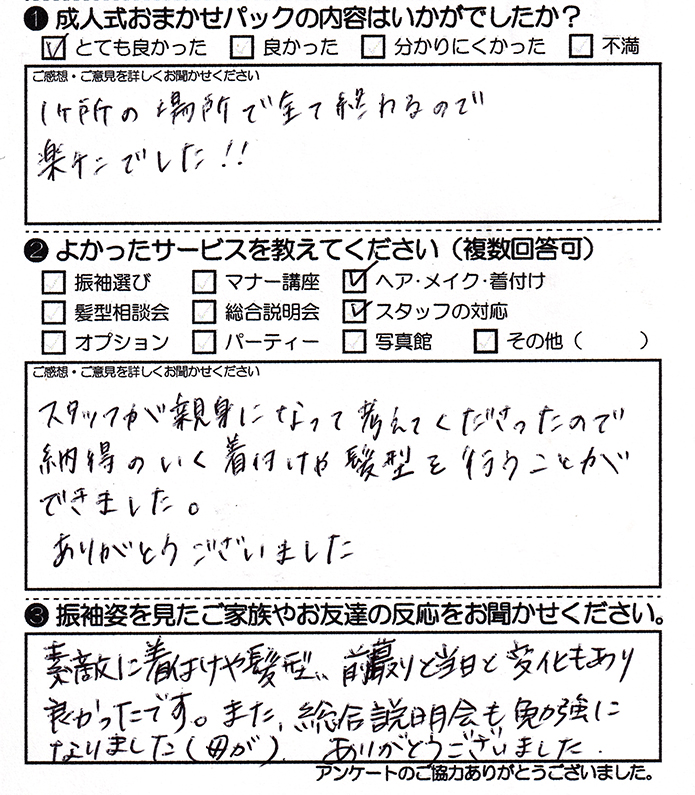 ❶ 成人式おまかせパックの内容はいかがでしたか？
とても良かった 良かった 分かりにくかった 不満
ご感想・ご意見を詳しくお聞かせください
1ヶ所の場所で全て終わるので
楽チンでした!!
❷ よかったサービスを教えてください（複数回答可）
振袖選び マナー講座 ヘア・メイク・着付け
髪型相談会 総合説明会 スタッフの対応
オプション パーティー 写真館 その他（ ）
ご感想・ご意見を詳しくお聞かせください
スタッフが親身になって考えてくださったので
納得のいく着付けや髪型を行うことが
できました。
ありがとうございました
❸ 振袖姿を見たご家族やお友達の反応をお聞かせください。
素敵に着付けや髪型、前撮りと当日と変化もあり
良かったです。また、総合説明会も勉強に
なりました(母が)。ありがとうございました.
アンケートのご協力ありがとうございました。